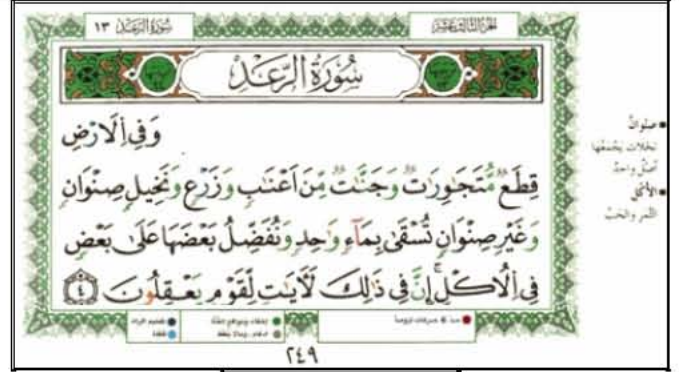 سُورَةُ الرَّعْدِ ١٣
الجزء الثالث عشر
سُورَةُ الرَّعْدِ
وَفِي اِلَارْضِ
قِطَعٌ مُّتَجَٰوِرَٰتٌ وَجَنَّٰتٌ مِّنَ اَعْنَٰبٍ وَزَرْعٍ وَنَخِيلٍ صِنْوَانٍ
وَغَيْرِ صِنْوَانٍ تُسْقَىٰ بِمَآءٍ وَٰحِدٍ وَنُفَضِّلُ بَعْضَهَا عَلَىٰ بَعْضٍ
فِي اِلُاكْلِ إِنَّ فِي ذَٰلِكَ لَأٓيَٰتٍ لِّقَوْمٍ يَعْقِلُونَ ٤
صنوان
نخلات يجمعها
أصل واحد
الأكل
الثمر والحب
٢٤٩